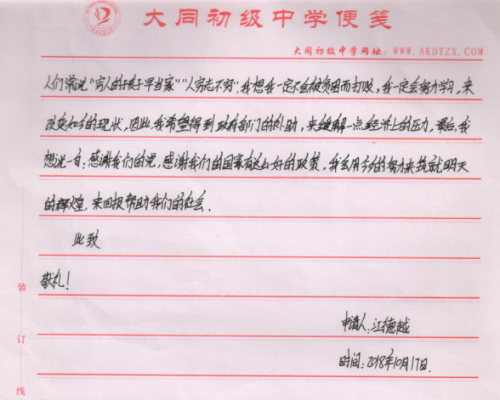 大同初级中学便笺
大同初级中学网址：WWW.AKDTZX.COM
人们常说"穷人的孩子早当家""人穷志不穷",我想我一定不会被贫困而打败,我一定会努力学习,来
改变如今的现状,因此,我希望得到政府部门的补助,来缓解一点经济上的压力,最后,我
想说一句：感谢我们的党,感谢我们的国家有这么好的政策,我会用今的努力来筑就明天
的辉煌,来回报帮助我们的社会.
此致
敬礼!
申请人：江德越
时间：2018年10月17日.
装
订
线